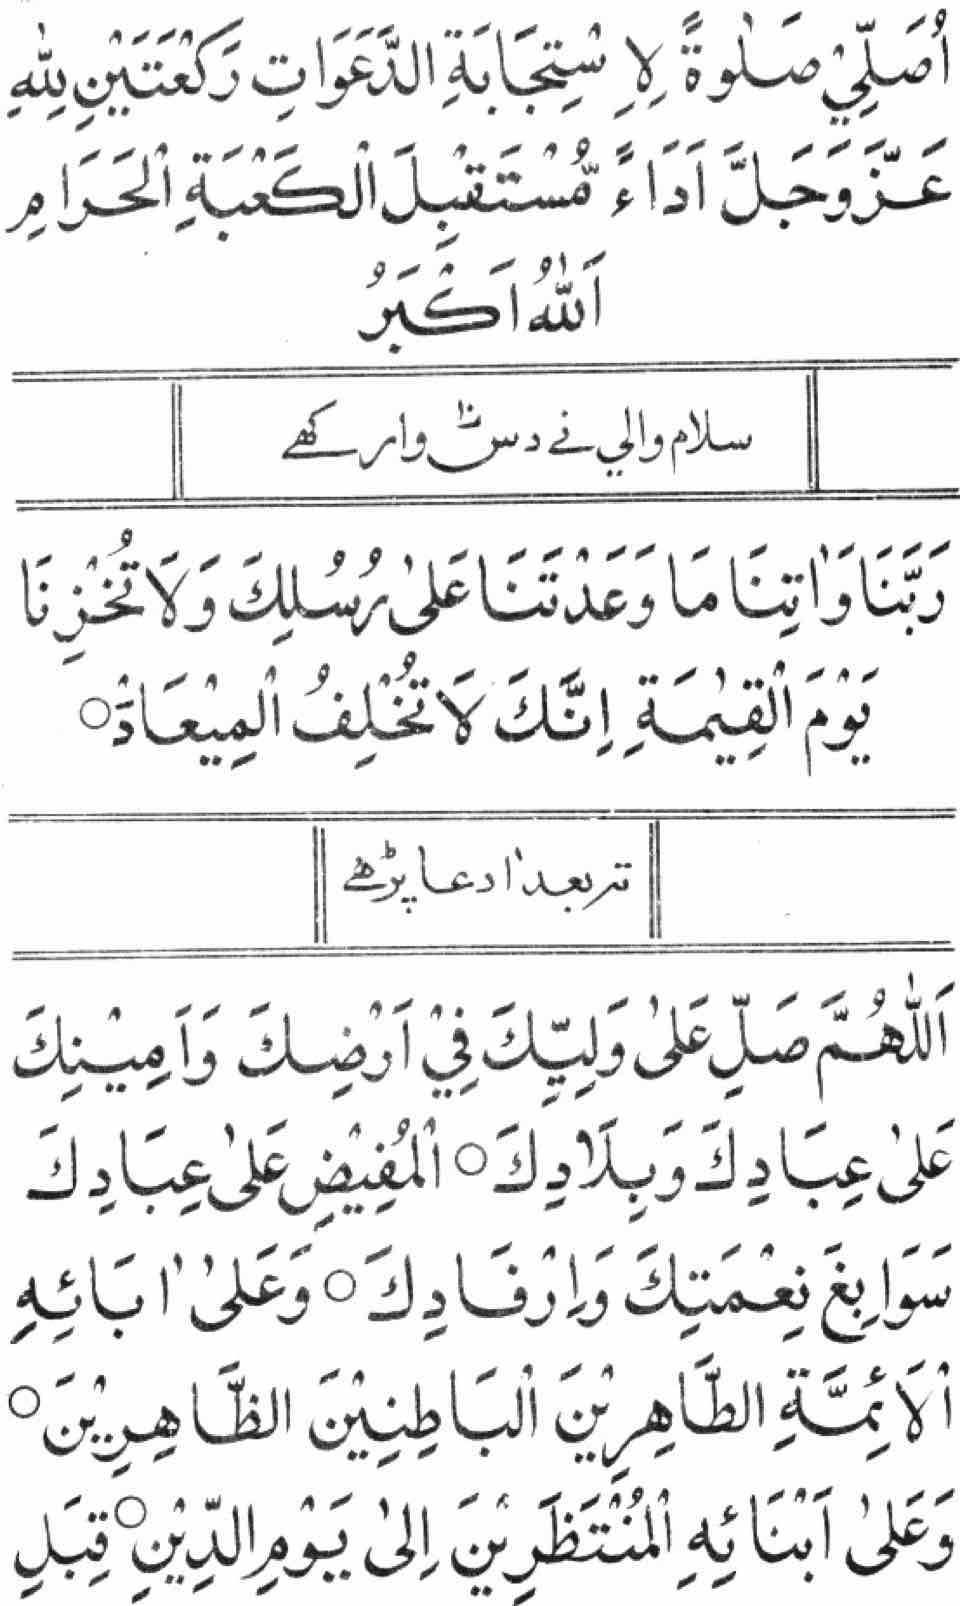 اُصَلِّيْ صَلٰوةً لِاِ سْتِجَابَةِ الدَّعَوَاتِ رَكْعَتَيْنِ لِلّٰهِ
عَزَّ وَجَلَّ اَدَاءً مُّسْتَقْبِلَ الْكَعْبَةِ الْحَرَامِ
اَللّٰهُ اَكْبَرُ
سلام والي نے دس وار کھے
رَبَّنَا وَاٰتِنَا مَا وَعَدْتَنَا عَلىٰ رُسُلِكَ وَلَا تُخْزِنَا
يَوْمَ الْقِيٰمَةِ اِنَّكَ لَا تُخْلِفُ الْمِيْعَادْ○
تر بعد اٰ دعا پڑھے
اَللّٰهُمَّ صَلِّ عَلىٰ وَلِيِّكَ فِيْ اَرْضِكَ وَاَمِيْنِكَ
عَلىٰ عِبَادِكَ وَبِلَادِكَ ○ اَلْمُفِيْضِ عَلىٰ عِبَادِكَ
سَوَابِغَ نِعْمَتِكَ وَاِرْفَادِكَ ○ وَعَلىٰ اٰبَائِهِ
اْلاَئِمَّةِ الطَّاهِرِيْنَ اْلبَاطِنِيْنَ الظَّاهِرِيْنَ ○
وَعَلىٰ اَبْنَائِهِ اْلمُنْتَظَرِيْنَ اِلىٰ يَوْمِ الدِّيْنِ○ قِبَلِ